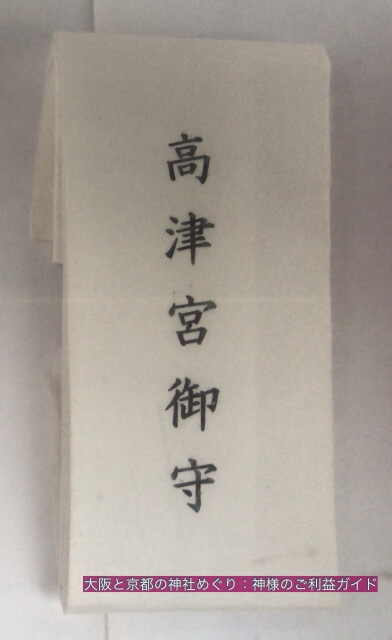 高津宮御守
大阪と京都の神社めぐり：神様のご利益ガイド